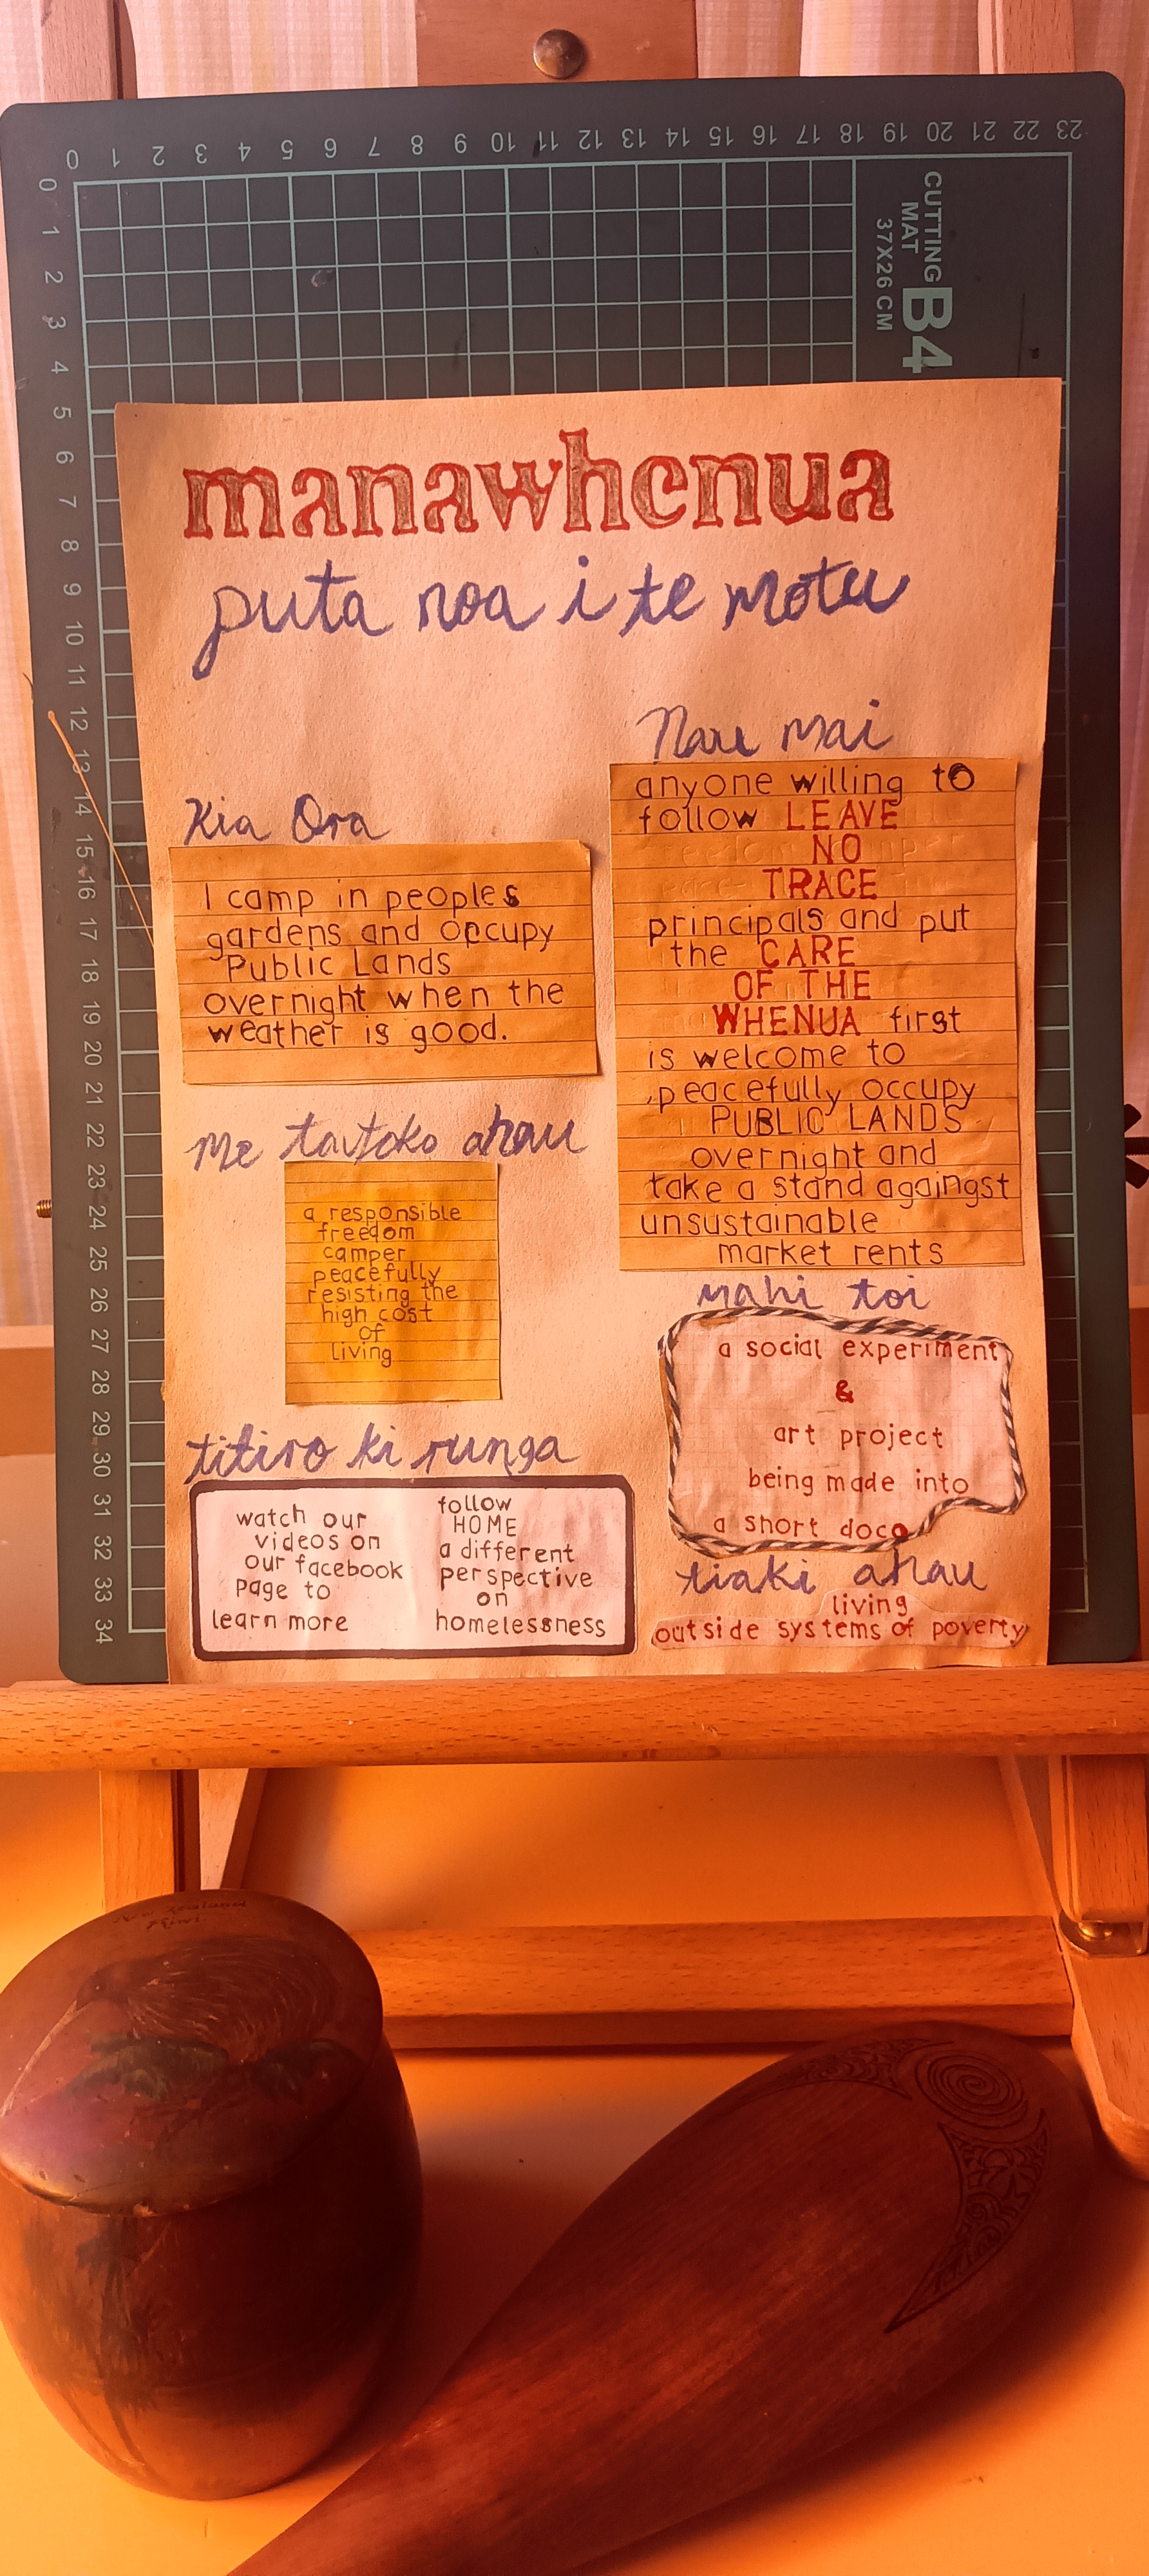 0 1 2 3 4 5 6 7 8 9 10 11 12 13 14 15 16 17 18 19 20 21 22 23
0 1 2 3 4 5 6 7 8 9 10 11 12 13 14 15 16 17 18 19 20 21 22 23 24 25 26 27 28 29 30 31 32 33 34
CUTTING
MAT
37X26 CM
B4
manawhenua
puta noa i te motu
Kia Ora
I camp in peoples
gardens and occupy
Public Lands
overnight when the
weather is good.
Me tautoko ahau
a responsible
freedom
camper
peacefully
resisting the
high cost
of
living
titiro ki runga
watch our
videos on
our facebook
page to
learn more
follow
HOME
a different
perspective
on
homelessness
Nau mai
anyone willing to
follow LEAVE
NO
TRACE
principals and put
the CARE
OF THE
WHENUA first
is welcome to
peacefully occupy
PUBLIC LANDS
overnight and
take a stand againgst
unsustainable
market rents
mahi toi
a social experiment
&
art project
being made into
a short doco
tiaki ahau
living
outside systems of poverty
New Zealand
Kiwi